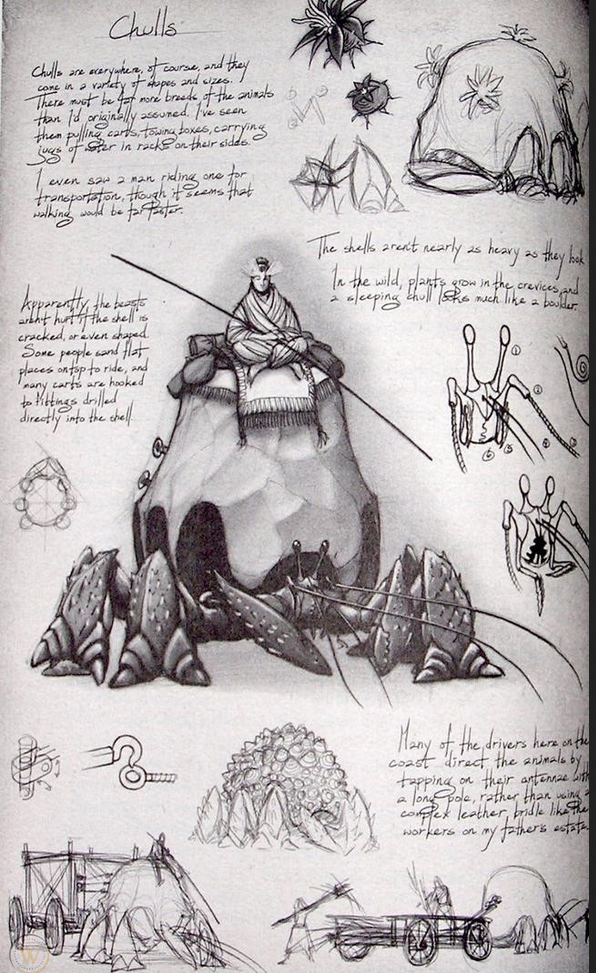 Chulls
Chulls are everywhere, of course, and they
come in a variety of shapes and sizes.
There must be far more breeds of the animals
than I'd originally assumed. I've seen
them pulling carts, towing boxes, carrying
jugs of water in racks on their sides.
I even saw a man riding one for
transportation, though it seems that
walking would be far faster.
The shells aren't nearly as heavy as they look
In the wild, plants grow in the crevices, and
a sleeping chull looks much like a boulder.
Apparently, the beasts
aren't hurt if the shell is
cracked, or even shaped.
Some people sand flat
places on top to ride, and
many carts are hooked
to fittings drilled
directly into the shell.
Many of the drivers here on the
coast direct the animals by
tapping on their antennae with
a long pole, rather than using a
complex leather, bridle like the
workers on my father's estate.